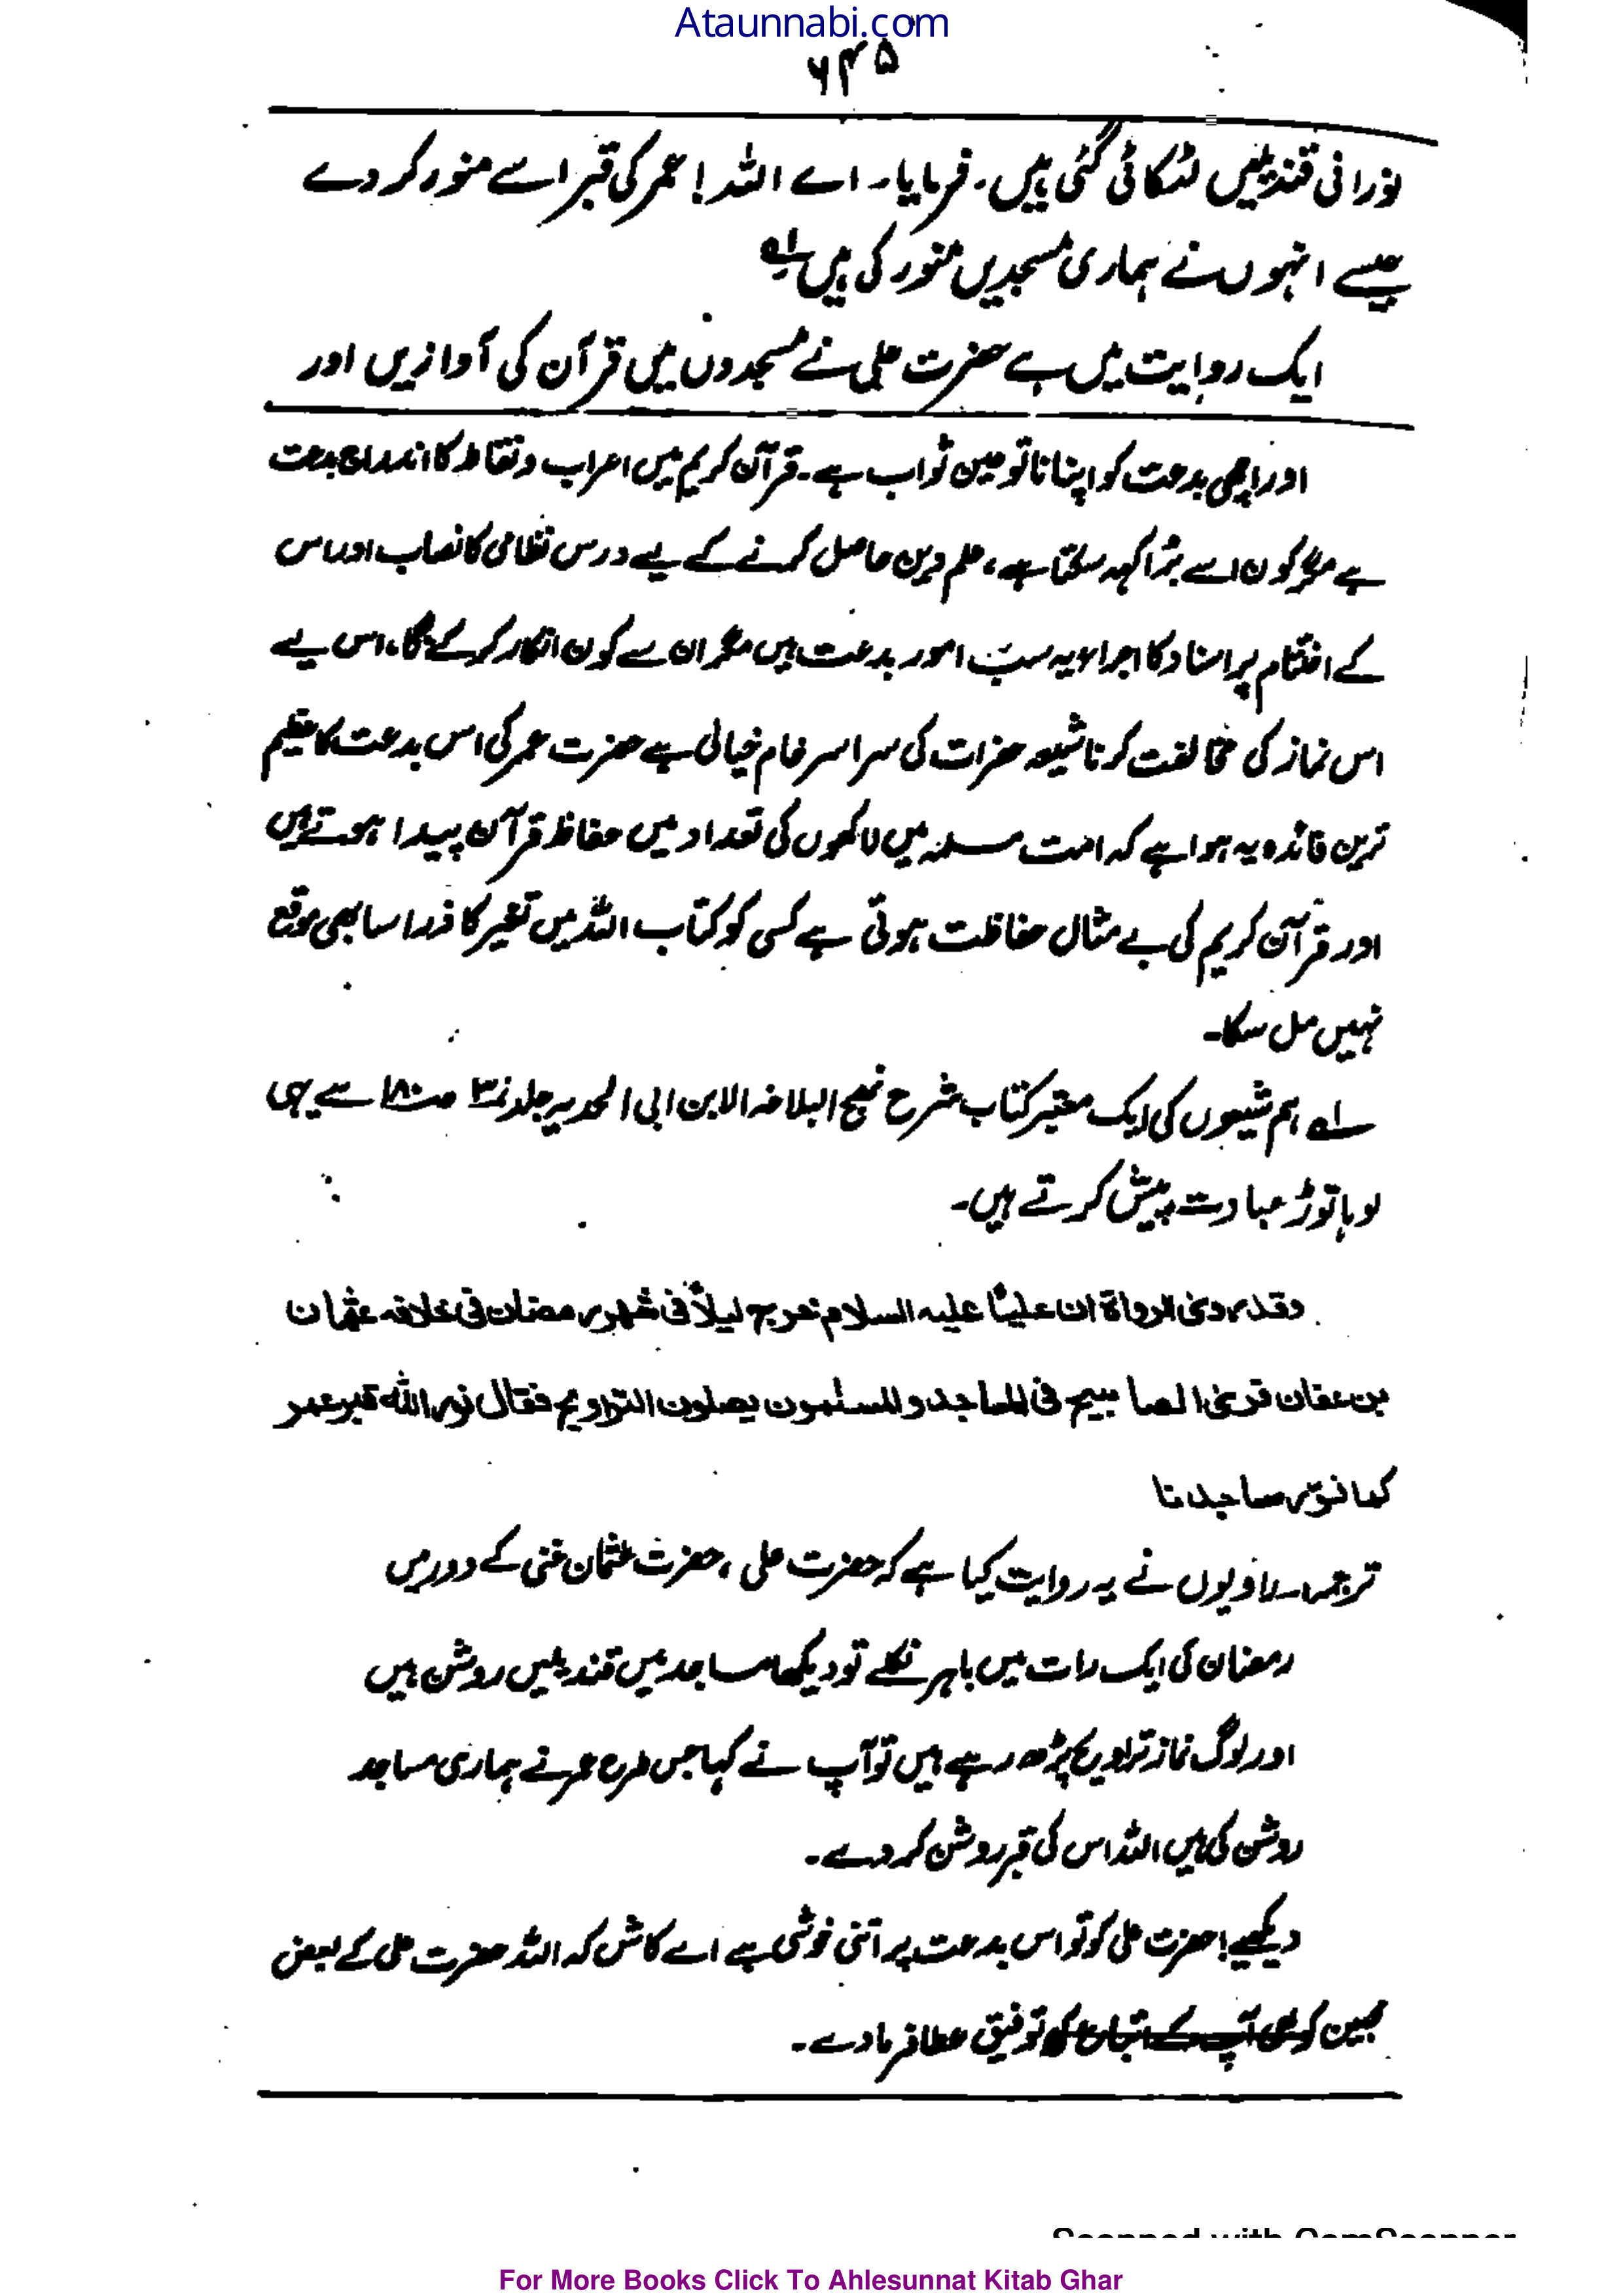 Ataunnabi.com
۶۴۵
نورانی قندیلیں لٹکائی گئی ہیں۔ فرمایا۔ اے اللہ! عمر کی قبر اسے منور کر دے
جیسے انہوں نے ہماری مسجدیں منور کی ہیں لہ
ایک روایت میں ہے حضرت علی نے مسجدوں میں قرآن کی آوازیں اور
اور اچھی بدعت کو اپنانا تو عین ثواب ہے۔ قرآن کریم میں اعراب و نقاط کا اندراج بدعت
ہے مگر کون اسے بُرا کہہ سکتا ہے، علم دین حاصل کرنے کے لیے درس نظامی کا نصاب اور اس
کے اختتام پر اسناد کا اجراء یہ سب امور بدعت ہیں مگر ان سے کون انکار کرے گا، اس لیے
اس نماز کی مخالفت کرنا شیعہ حضرات کی سراسر خام خیالی ہے حضرت عمر کی اس بدعت کا عظیم
ترین فائدہ یہ ہوا ہے کہ امت مسلمہ میں لاکھوں کی تعداد میں حفاظ قرآن پیدا ہوتے ہیں
اور قرآن کریم کی بے مثال حفاظت ہوئی ہے کسی کو کتاب اللہ میں تغیر کا ذرا سا بھی موقع
نہیں مل سکا۔
لہ ہم شیعوں کی ایک معتبر کتاب شرح نہج البلاغہ الابن ابی الحدید جلد نمبر ۳ ص ۱۸۰ سے یہی
لوہا توڑ عبارت پیش کرتے ہیں۔
وقد روی الرواة ان علیًا علیہ السلام خرج لیلاً فی شہر رمضان فی خلافہ عثمان
بن عفان فرئی المصابیح فی المساجد والمسلمون یصلون التراویح فقال نور اللہ قبر عمر
کما نوّر مساجدنا
ترجمہ۔ راویوں نے یہ روایت کیا ہے کہ حضرت علی، حضرت عثمان غنی کے دور میں
رمضان کی ایک رات میں باہر نکلے تو دیکھا مساجد میں قندیلیں روشن ہیں
اور لوگ نماز تراویح پڑھ رہے ہیں تو آپ نے کہا جس طرح عمر نے ہماری مساجد
روشن کی ہیں اللہ اس کی قبر روشن کر دے۔
دیکھیے! حضرت علی کو تو اس بدعت پر اتنی خوشی ہے اے کاش کہ اللہ حضرت علی کے بعض
محبین کو بھی آپ کے اتباع کی توفیق عطا فرما دے۔
For More Books Click To Ahlesunnat Kitab Ghar